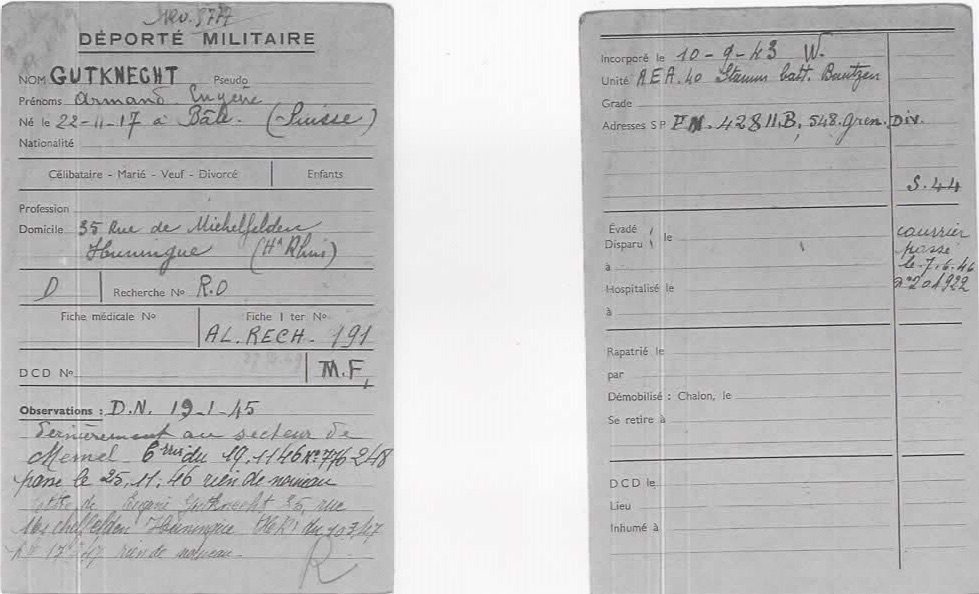 DÉPORTÉ MILITAIRE
NOM GUTKNECHT Pseudo
Prénoms Armand Eugène
Né le 22-11-17 à Bâle. (Suisse)
Nationalité
Célibataire - Marié - Veuf - Divorcé Enfants
Profession
Domicile 35 Rue de Michelfelden
Huningue (Ht Rhin)
D Recherche No R.D
Fiche médicale No Fiche I ter No
AL. RECH. 191
DCD No M.F.
Observations : D.N. 19-1-45
Dernièrement au secteur de
Memel 6 du 19.11 46 No 776-248
passé le 25.11.46 rien de nouveau
de Eugène Gutknecht 35, rue
Huningue du
rien de nouveau
R
Incorporé le 10-9-43 W.
Unité A.E.A. 40 Stamm batt. Bautzen
Grade
Adresses S P 42811.B, 548. Gren. Div.
S. 44
Evadé
Disparu le
à
courrier
passé
le 7.6.46
no 201922
Hospitalisé le
à
Rapatrié le
par
Démobilisé : Chalon, le
Se retire à
DCD le
Lieu
Inhumé à